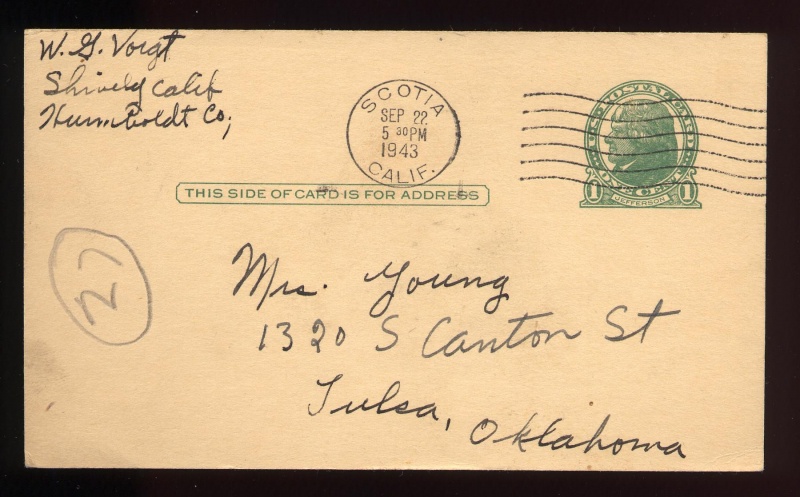 W. G. Voigt
Shively Calif
Humboldt Co,
SCOTIA
SEP 22
5 30 PM
1943
CALIF.
U.S. POSTAL CARD
ONE CENT
1 1
JEFFERSON
THIS SIDE OF CARD IS FOR ADDRESS
27
Mrs. Young
1320 S Canton St
Tulsa, Oklahoma